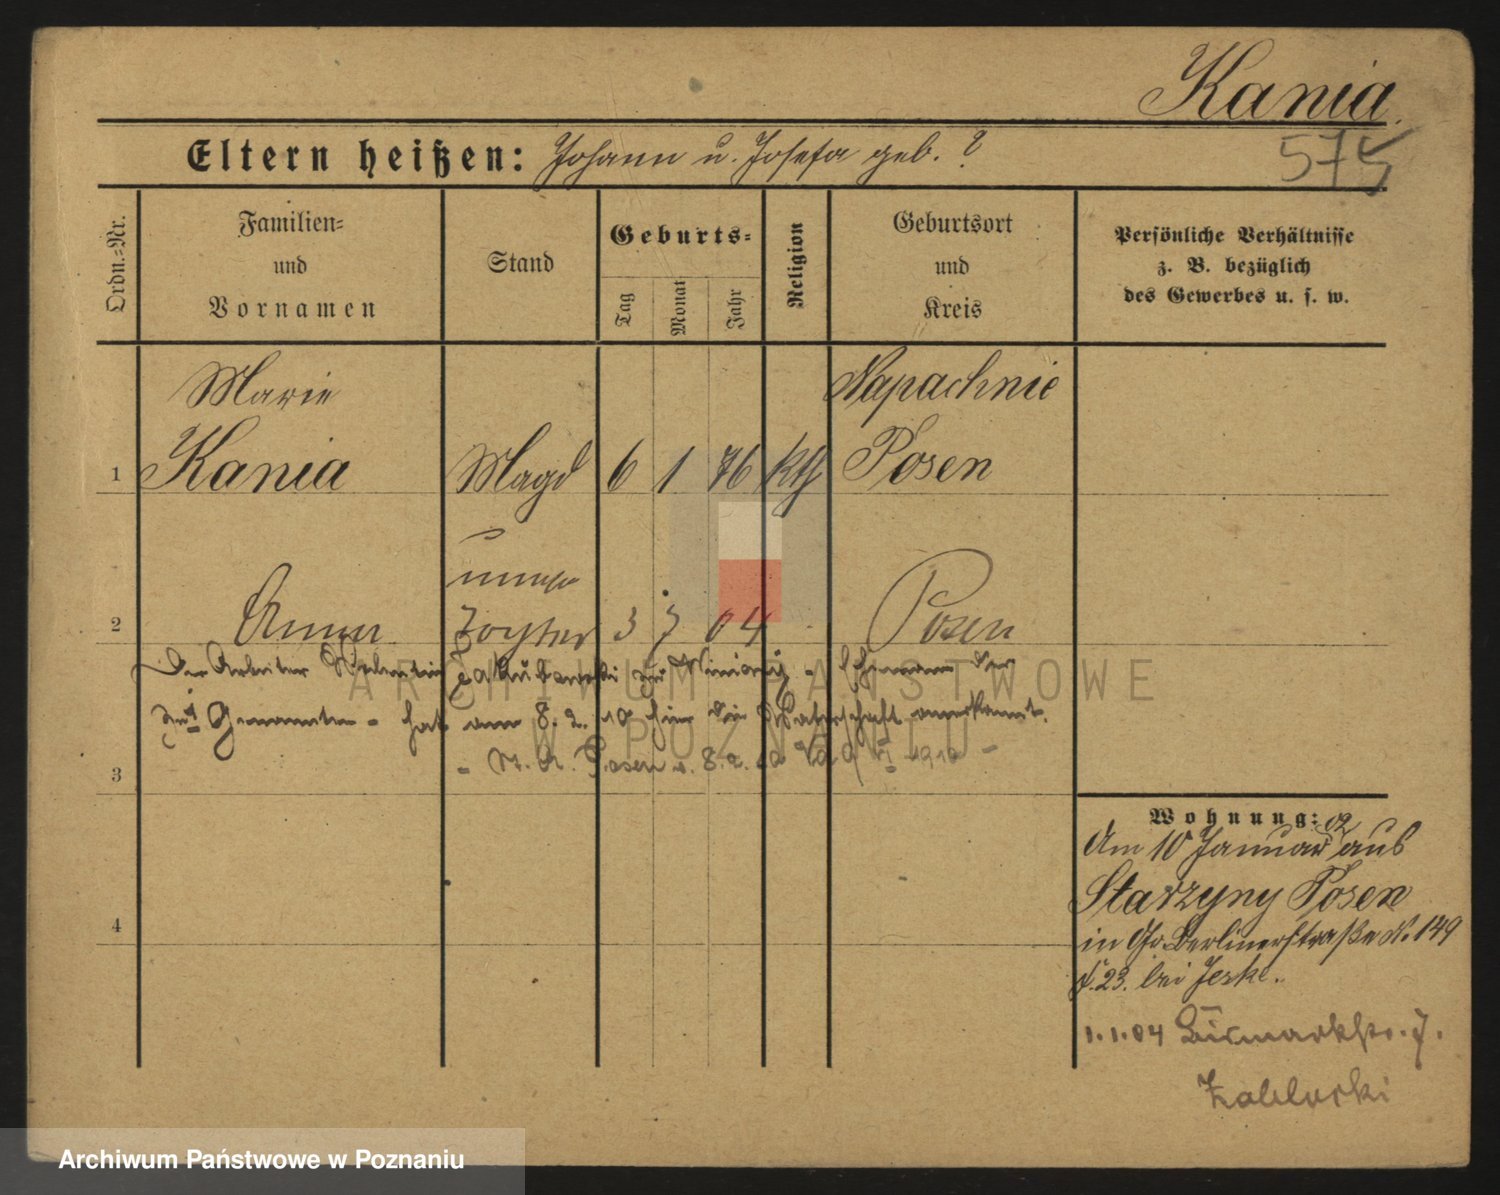 Kania.
575
Eltern heißen: Johann u. Josefa geb. ?
Ordn.=Nr.
Familien=
und
Vornamen
Stand
Geburts=
Tag
Monat
Jahr
Religion
Geburtsort
und
Kreis
Persönliche Verhältnisse
z. B. bezüglich
des Gewerbes u. s. w.
Marie Napachnie
1 Kania Magd 6 1 76 kth Posen
2 Anna 3 7 04 Posen
Der Arbeiter zu Winiary - Ehemann der
zu 1 Genannten - hat am 8. 2. 10 hier die Vaterschaft anerkannt.
- St. A. Posen v. 8. 2. 10 1910 -
3
4
Wohnung:
Am 10 Januar 02 aus
Starzyny Posen
in Gr. Berlinerstraße No 149
23. bei Jeske.
1.1.04 Bismarckstr. 7.
ARCHIWUM PAŃSTWOWE
W POZNANIU
Archiwum Państwowe w Poznaniu